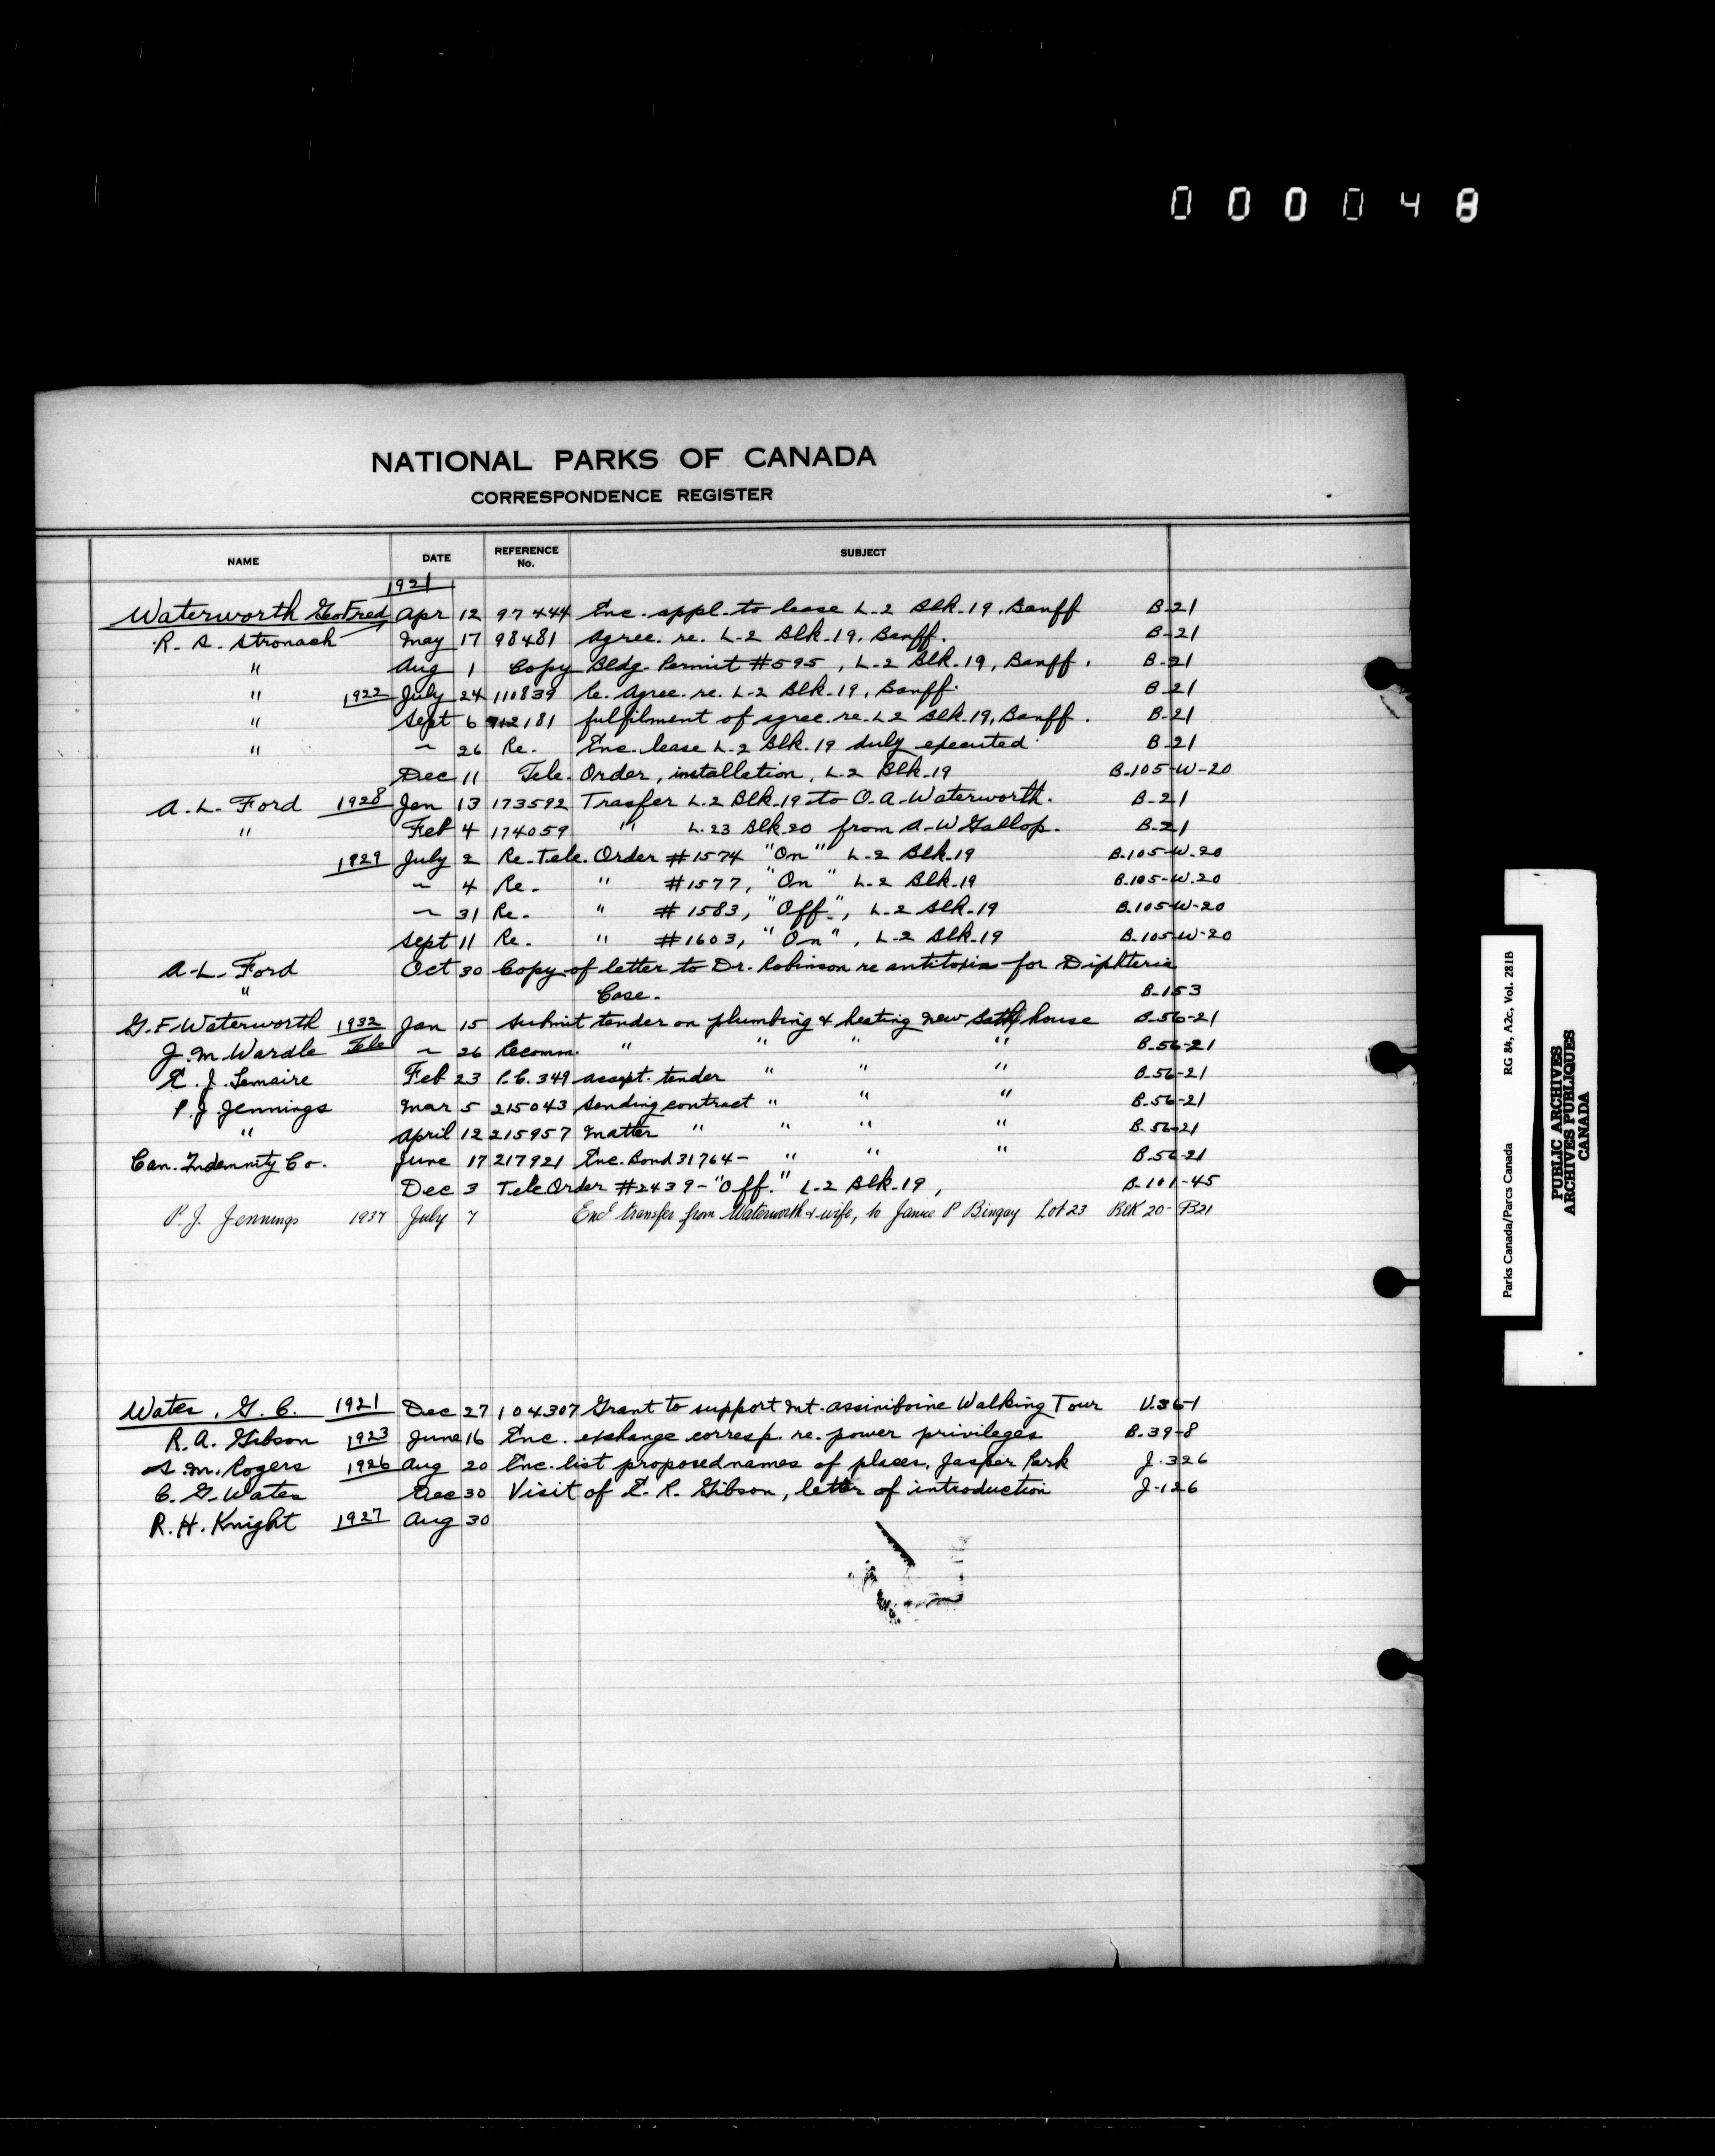 000048
NATIONAL PARKS OF CANADA
CORRESPONDENCE REGISTER
NAME DATE REFERENCE No. SUBJECT
1921
Waterworth Geo Fred Apr 12 97444 Enc. appl. to lease L-2 Blk-19, Banff B-21
R. S. Stronach May 17 98481 Agree. re. L-2 Blk-19, Banff. B-21
" Aug 1 Copy Bldg. Permit #595, L-2 Blk-19, Banff. B-21
" 1922 July 24 110839 C. Agree. re. L-2 Blk-19, Banff. B-21
" Sept 6 112181 fulfilment of agree. re. L-2 Blk.19, Banff. B-21
" ~ 26 Re. Enc. lease L-2 Blk.19 duly executed B-21
Dec 11 Tele. Order, installation, L-2 Blk-19 B-105-W-20
A. L. Ford 1928 Jan 13 173592 Trasfer L-2 Blk-19 to O. A. Waterworth. B-21
" Feb 4 174059 " L.23 Blk.20 from A-W Gallop. B-21
1929 July 2 Re-Tele. Order #1574 "On" L-2 Blk-19 B-105-W-20
~ 4 Re- " #1577, "On" L-2 Blk-19 B-105-W-20
~ 31 Re- " #1583, "Off", L-2 Blk-19 B-105-W-20
Sept 11 Re- " #1603, "On", L-2 Blk-19 B-105-W-20
A-L. Ford Oct 30 Copy of letter to Dr. Robinson re antitoxin for Diphteria
" Case. B-153
G. F Waterworth 1932 Jan 15 Submit tender on plumbing & heating new Bath house B-56-21
J. M. Wardle Tele ~ 26 Recomm. " " " " B-56-21
E. J. Lemaire Feb 23 P.C. 349 accept. tender " " " B-56-21
P. J Jennings Mar 5 215043 Sending contract " " " B-56-21
" April 12 215957 Matter " " " " B-56-21
Can. Indemnity Co. June 17 217921 Enc. Bond 31764- " " " B-56-21
Dec 3 Tele Order #2439-"Off." L-2 Blk-19, B-101-45
P. J. Jennings 1937 July 7 Encl transfer from Waterworth & wife, to Janice P Bingay Lot 23 Blk 20- B21
Wates, G. C. 1921 Dec 27 104307 Grant to support Mt. Assiniboine Walking Tour U.36-1
R. A. Gibson 1923 June 16 Enc. exchange corresp. re. power privileges B.39-8
S. M. Rogers 1926 Aug 20 Enc. list proposed names of places, Jasper Park J-326
C. G. Wates Dec 30 Visit of E. R. Gibson, letter of introduction J-126
R. H. Knight 1927 Aug 30
Parks Canada/Parcs Canada RG 84, A2c, Vol. 281B
PUBLIC ARCHIVES
ARCHIVES PUBLIQUES
CANADA